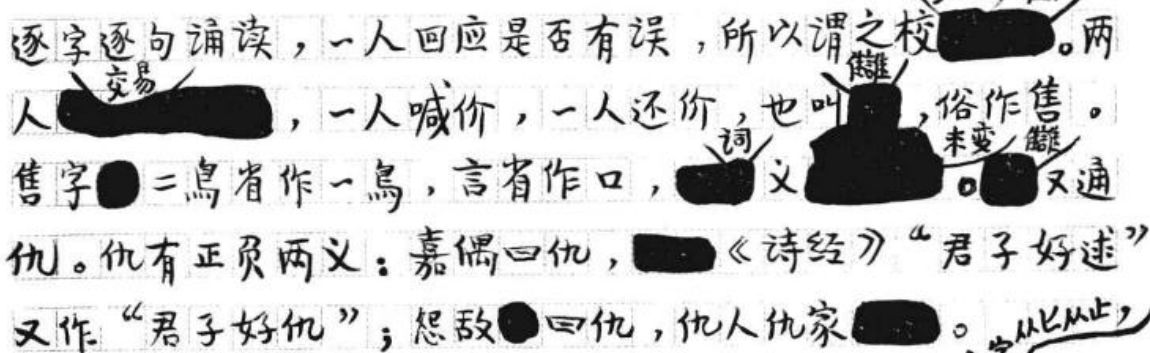 逐字逐句诵读，一人回应是否有误，所以谓之校。两
人交易，一人喊价，一人还价，也叫雠，俗作售。
售字二鳥省作一鳥，言省作口，词义未变。雠又通
仇。仇有正负两义：嘉偶曰仇，《诗经》“君子好逑”
又作“君子好仇”；怨敌曰仇，仇人仇家。
字从匕从止，